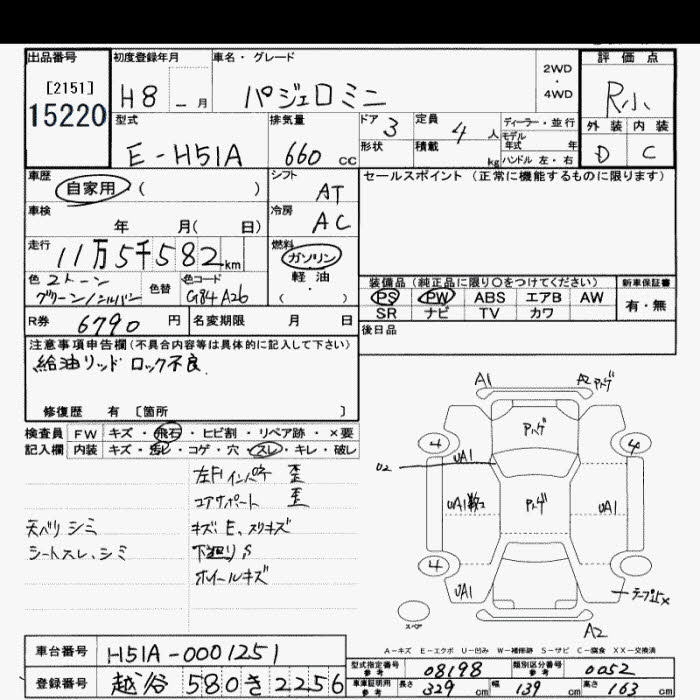 出品番号
[2151]
15220
初度登録年月
H8 - 月
車名・グレード
パジェロミニ
2WD
・
4WD
評価点
R小
外装 内装
D C
型式
E-H51A
排気量
660 cc
ドア 3
形状
定員 4 人
積載 kg
ディーラー・並行
モデル
年式 年
ハンドル 左・右
車歴
自家用 ( )
シフト
AT
セールスポイント(正常に機能するものに限ります)
車検
年 月( 日)
冷房
AC
走行
11万5千582km
燃料
ガソリン
軽油
( ・ )
色 2トーン
グリーン/シルバー
色替
色コード
G84 A26
装備品(純正品に限り○をつけてください)
PS PW ABS エアB AW
SR ナビ TV カワ
新車保証書
有・無
R券 6790 円
名変期限 月 日
後日品
注意事項申告欄(不具合内容等は具体的に記入して下さい)
給油リッド ロック不良
修復歴 有 [箇所 ]
検査員 FW キズ・飛石・ヒビ割・リペア跡・×要
記入欄 内装 キズ・汚レ・コゲ・穴・スレ・キレ・破レ
左Fインパネ 歪
コアサポート 歪
天ベリ シミ
キズ、E、スリキズ
シートスレ、シミ
下廻りS
ホイールキズ
A1
A2
4
4
4
U2
UA1
UA1
UA1
A2
スペア
A-キズ E-エクボ U-凹み W-補修跡 S-サビ C-腐食 XX-交換済
車台番号 H51A-0001251
登録番号 越谷 580 き 2256
型式指定番号
参考
08198
類別区分番号
参考
0052
車庫証明用
参考
長さ 329 cm
幅 139 cm
高さ 163 cm